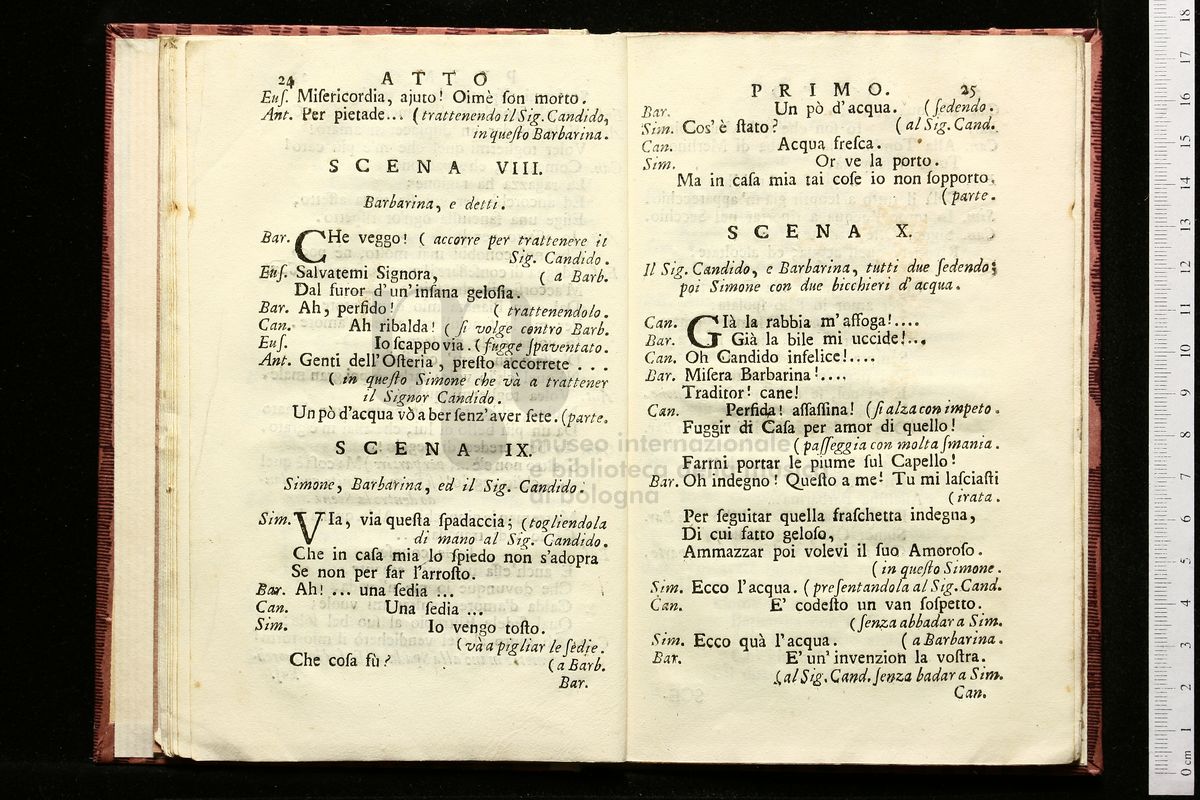 24 ATTO
Euſ. Miſericordia, ajuto! Oimè ſon morto.
Ant. Per pietade... (trattenendo il Sig. Candido,
in queſto Barbarina.
SCENA VIII.
Barbarina, e detti.
Bar. CHe veggo! ( accorre per trattenere il
Sig. Candido.
Euſ. Salvatemi Signora, ( a Barb.
Dal furor d'un'inſana geloſia.
Bar. Ah, perfido! ( trattenendolo.
Can. Ah ribalda! ( ſi volge contro Barb.
Euſ. Io ſcappo via. (fugge ſpaventato.
Ant. Genti dell'Oſteria, preſto accorrete ...
( in queſto Simone che và a trattener
il Signor Candido.
Un pò d'acqua vò a ber ſenz'aver ſete. (parte.
SCENA IX.
Simone, Barbarina, ed il Sig. Candido.
Sim. VIa, via queſta ſpadaccia; (togliendola
di mano al Sig. Candido.
Che in caſa mia lo ſpiedo non s'adopra
Se non per far l'arroſto.
Bar. Ah! ... una ſedia ...
Can. Una ſedia ...
Sim. Io vengo toſto.
(và a pigliar le ſedie.
Che coſa fù? (a Barb.
Bar.
PRIMO. 25
Bar. Un pò d'acqua. (ſedendo.
Sim. Cos'è ſtato? (al Sig. Cand.
Can. Acqua freſca.
Sim. Or ve la porto.
Ma in caſa mia tai coſe io non ſopporto.
(parte.
SCENA X.
Il Sig. Candido, e Barbarina, tutti due ſedendo;
poi Simone con due bicchieri d'acqua.
Can. GIà la rabbia m'affoga!....
Bar. Già la bile mi uccide!...
Can. Oh Candido infelice!....
Bar. Miſera Barbarina!....
Traditor! cane!
Can. Perfida! aſſaſſina! (ſi alza con impeto.
Fuggir di Caſa per amor di quello!
(paſſeggia con molta ſmania.
Farmi portar le piume ſul Capello!
Bar. Oh indegno! Queſto a me! Tu mi laſciaſti
(irata.
Per ſeguitar quella fraſchetta indegna,
Di cui fatto geloſo,
Ammazzar poi volevi il ſuo Amoroſo.
(in queſto Simone.
Sim. Ecco l'acqua. (preſentandola al Sig. Cand.
Can. E' codeſto un van ſoſpetto.
(ſenza abbadar a Sim.
Sim. Ecco quà l'acqua. (a Barbarina.
Bar. E' un'invenzion la voſtra.
(al Sig. Cand. ſenza badar a Sim.
Can.
museo internazionale
e biblioteca della musica
di Bologna
0 cm 1 2 3 4 5 6 7 8 9 10 11 12 13 14 15 16 17 18